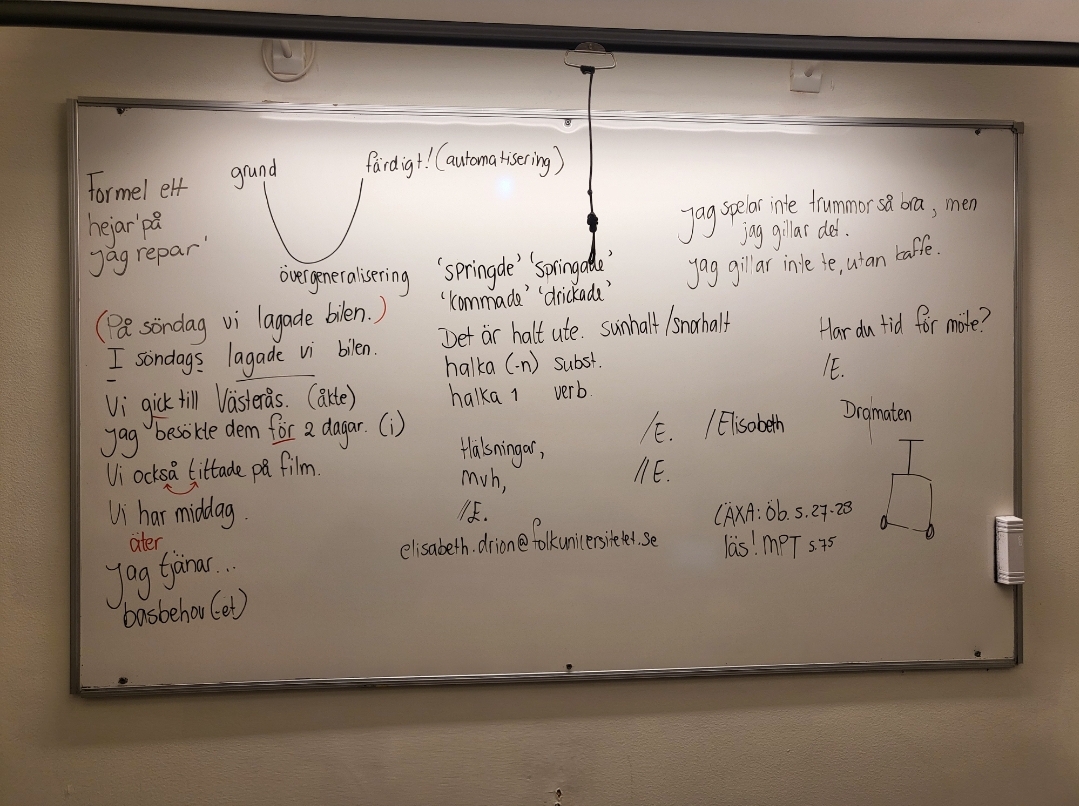 Formel ett
hejar'på
jag repar'
grund
färdigt! (automatisering)
övergeneralisering
(På söndag vi lagade bilen.)
I söndags lagade vi bilen.
Vi gick till Västerås. (åkte)
Jag besökte dem för 2 dagar. (i)
Vi också tittade på film.
Vi har middag.
äter
Jag tjänar...
basbehov (-et)
'springde' 'springade'
'kommade' 'drickade'
Det är halt ute. svinhalt / snorhalt
halka (-n) subst.
halka 1 verb
Hälsningar,
Mvh,
//E.
elisabeth.drion@folkuniversitetet.se
/E.
//E.
/Elisabeth
Jag spelar inte trummor så bra, men
jag gillar det.
Jag gillar inte te, utan kaffe.
Har du tid för möte?
/E.
Dramaten
LÄXA: Öb. s. 27-28
läs! MPT s.75